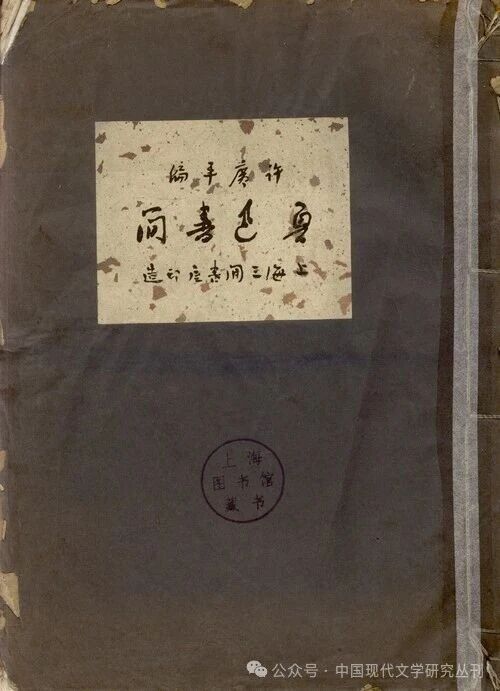 许廣平编
鲁迅書简
上海三闲書屋印造
上海
图书馆
藏书
公众号·中国现代文学研究丛刊